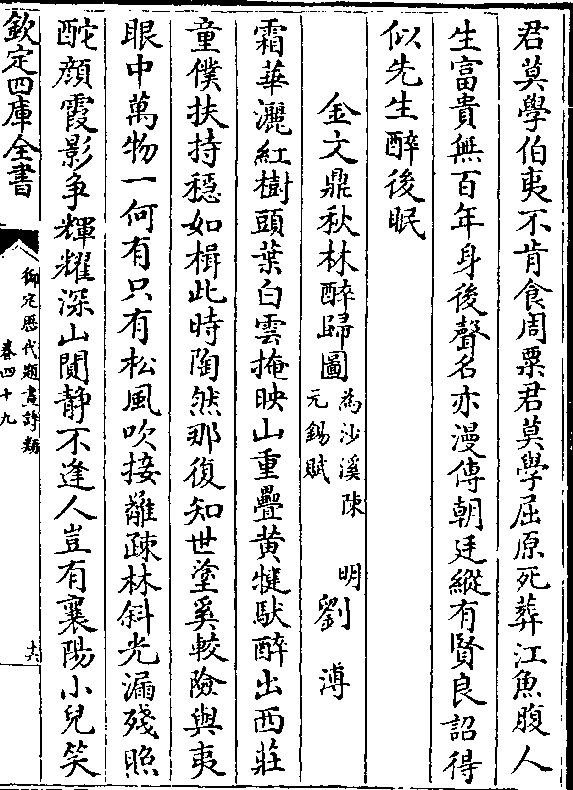 君莫學伯夷不肯食周粟君莫學屈原死葬江魚腹人
生富貴無百年身後聲名亦漫傳朝廷縱有賢良詔得
似先生醉後眠
金文鼎秋林醉歸圖 為沙溪陳元錫賦 明 劉溥
霜華灑紅樹頭葉白雲掩映山重疊黄犍馱醉出西莊
童僕扶持穏如楫此時陶然那復知世塗奚較險與夷
眼中萬物一何有只有松風吹接䍦疎林斜光漏殘照
酡顔霞影爭輝耀深山閴静不逢人豈有襄陽小兒笑
欽定四庫全書
御定歷代題畫詩類
卷四十九
十六